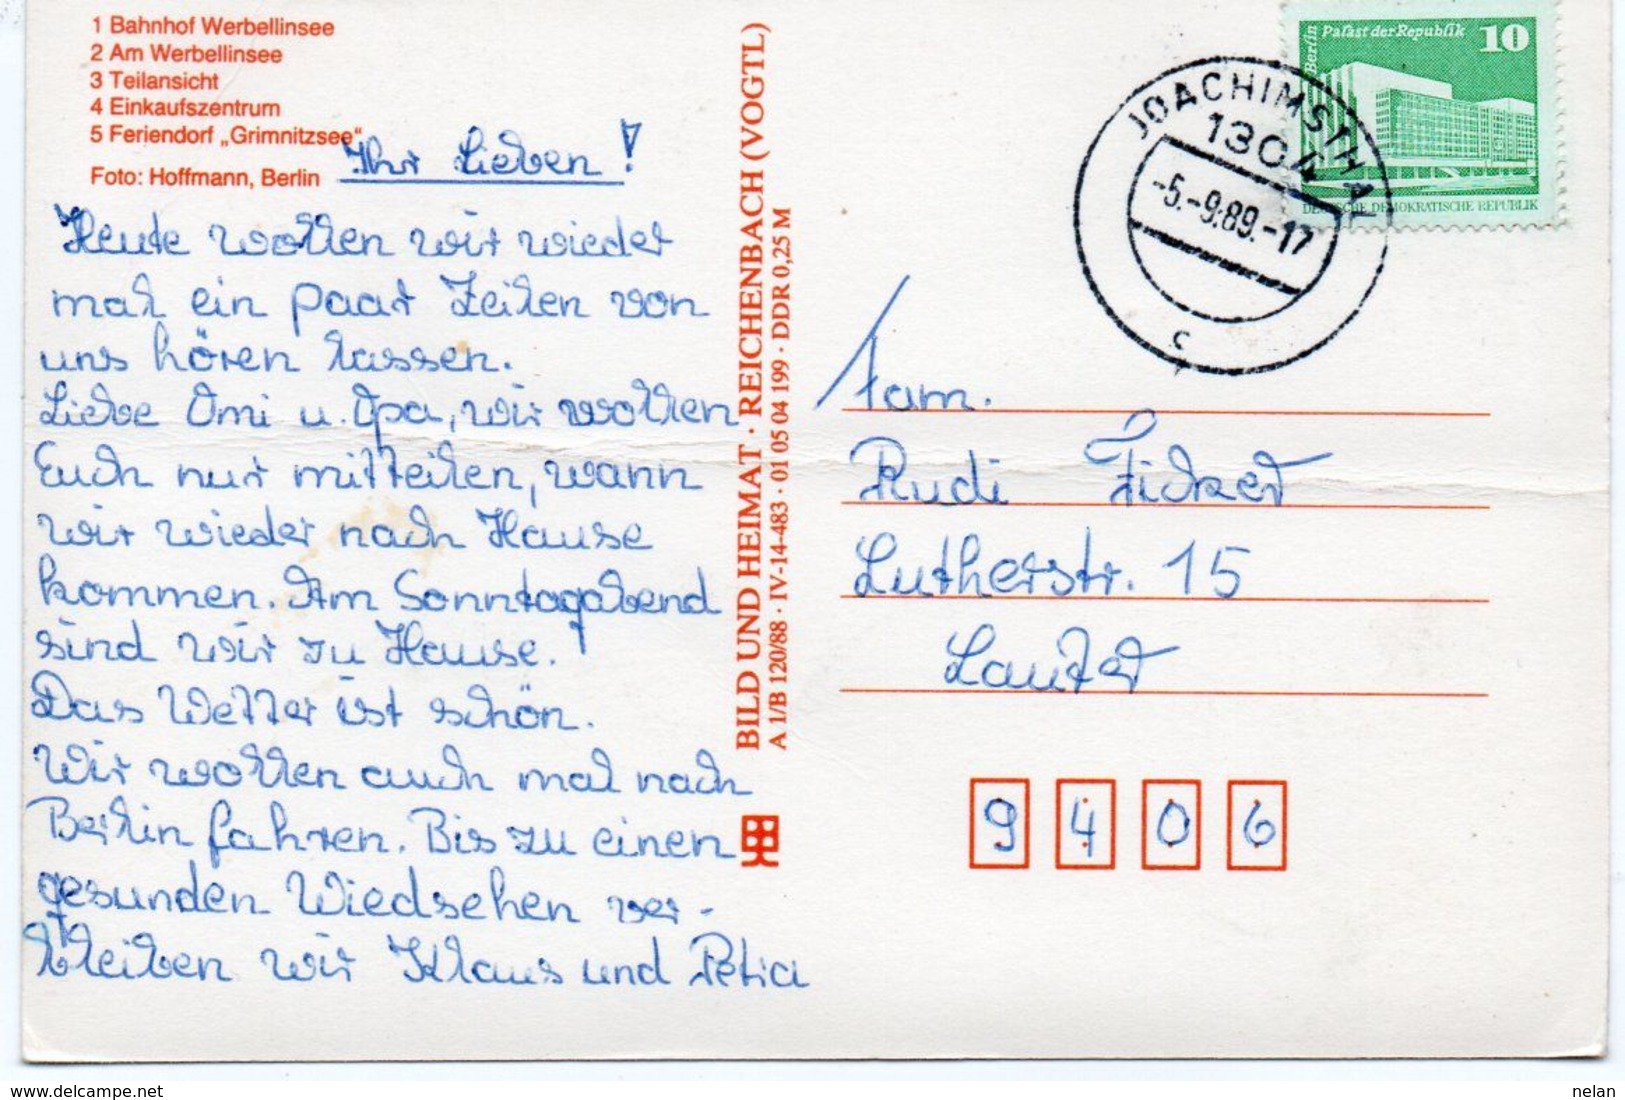 1 Bahnhof Werbellinsee
2 Am Werbellinsee
3 Teilansicht
4 Einkaufszentrum
5 Feriendorf „Grimnitzsee“
Foto: Hoffmann, Berlin
Ihr Lieben!
Heute wollen wir wieder
mal ein paar Zeilen von
uns hören lassen.
Liebe Omi u. Opa, wir wollen
Euch nur mitteilen, wann
wir wieder nach Hause
kommen. Am Sonntagabend
sind wir zu Hause.
Das Wetter ist schön.
Wir wollen auch mal nach
Berlin fahren. Bis zu einen
gesunden Wiedsehen ver-
bleiben wir Klaus und Petra
BILD UND HEIMAT · REICHENBACH (VOGTL)
A 1/B 120/88 · IV-14-483 · 01 05 04 199 · DDR 0,25 M
Berlin
Palast der Republik 10
DEUTSCHE DEMOKRATISCHE REPUBLIK
JOACHIMSTHAL
1304
-5.-9.89.-17
c
Fam.
Rudi Ficker
Lutherstr. 15
Lauter
9406
nelan